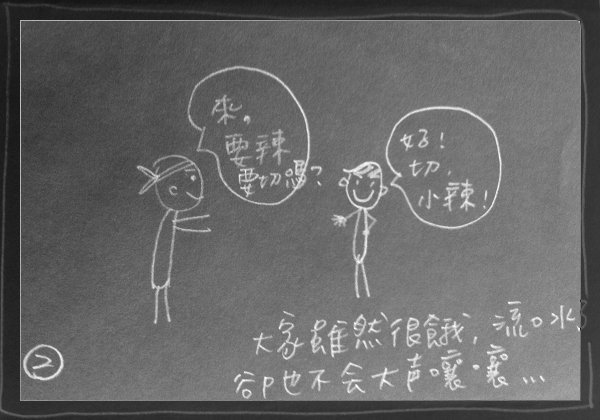 來，
要辣
要切嗎？
好！
切，
小辣！
大家雖然很餓，流口水了
卻也不会大声嚷嚷…
2